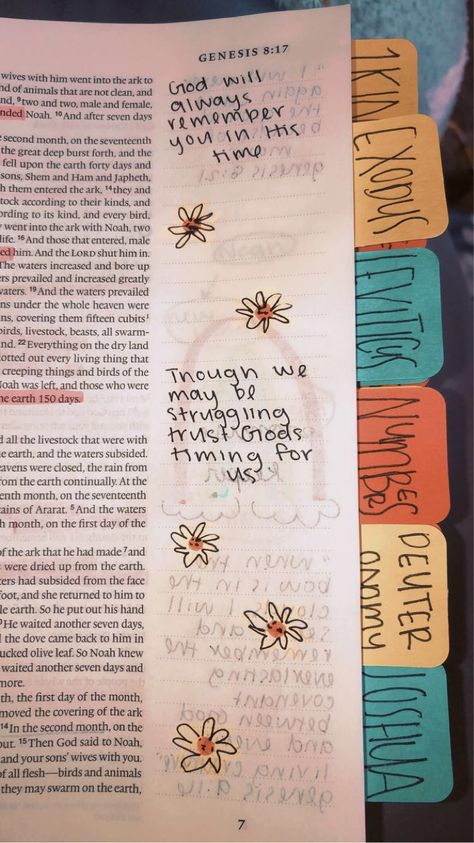 GENESIS 8:17
wives with him went into the ark to
nd of animals that are not clean, and
nd, 9two and two, male and female,
nded Noah. 10And after seven days
second month, on the seventeenth
the great deep burst forth, and the
fell upon the earth forty days and
sons, Shem and Ham and Japheth,
h them entered the ark, 14they and
tock according to their kinds, and
ording to its kind, and every bird,
went into the ark with Noah, two
life. 16And those that entered, male
ed him. And the LORD shut him in.
The waters increased and bore up
ers prevailed and increased greatly
waters. 19And the waters prevailed
ns under the whole heaven were
ns, covering them fifteen cubits
birds, livestock, beasts, all swarm-
nd. 22Everything on the dry land
lotted out every living thing that
creeping things and birds of the
Noah was left, and those who were
he earth 150 days.
d all the livestock that were with
e earth, and the waters subsided.
eavens were closed, the rain from
rom the earth continually. At the
enth month, on the seventeenth
ains of Ararat. 5And the waters
h month, on the first day of the
of the ark that he had made 7and
were dried up from the earth.
ters had subsided from the face
foot, and she returned to him to
le earth. So he put out his hand
He waited another seven days,
the dove came back to him in
ucked olive leaf. So Noah knew
waited another seven days and
more.
th, the first day of the month,
moved the covering of the ark
14In the second month, on the
out. 15Then God said to Noah,
and your sons' wives with you.
of all flesh—birds and animals
they may swarm on the earth,
God will
always
remember
you in His
time
Though we
may be
struggling
trust Gods
timing for
us
7
1 KIN
EXODUS
LEVITICS
NUMBERS
DEUTER
ONOMY
JOSHUA